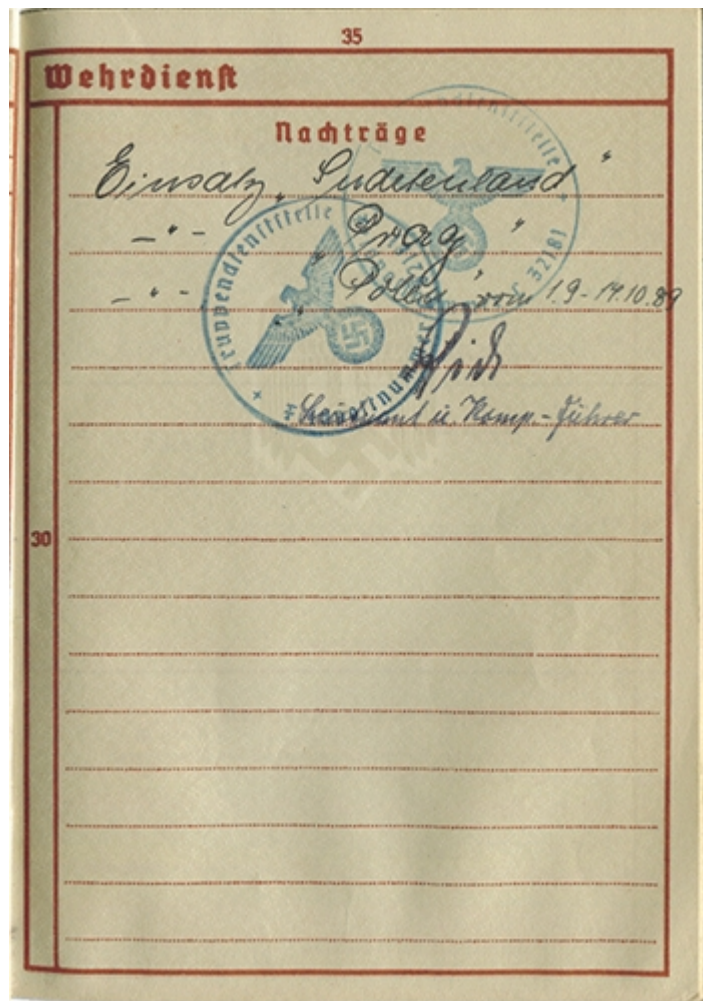 35
Wehrdienst
Nachträge
Einsatz „ Sudetenland "
— " — „ Prag "
— " — „ Polen " vom 1.9-14.10.39
Leutnant u. Komp.-Führer
30
Truppendienststelle
Feldpostnummer
32181